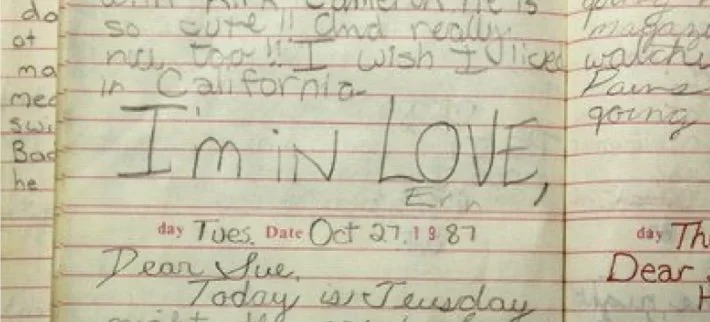 do
ot
ma
med
swi
Bad
he
with Kirk Cameron He is
so cute!! And really
nice too!! I wish I lived
in California
I'm in LOVE,
Erin
day Tues. Date Oct 27, 1987
Dear Sue,
Today is Teusday
going
magazi
watchi
Pains
going
day Th
Dear
H